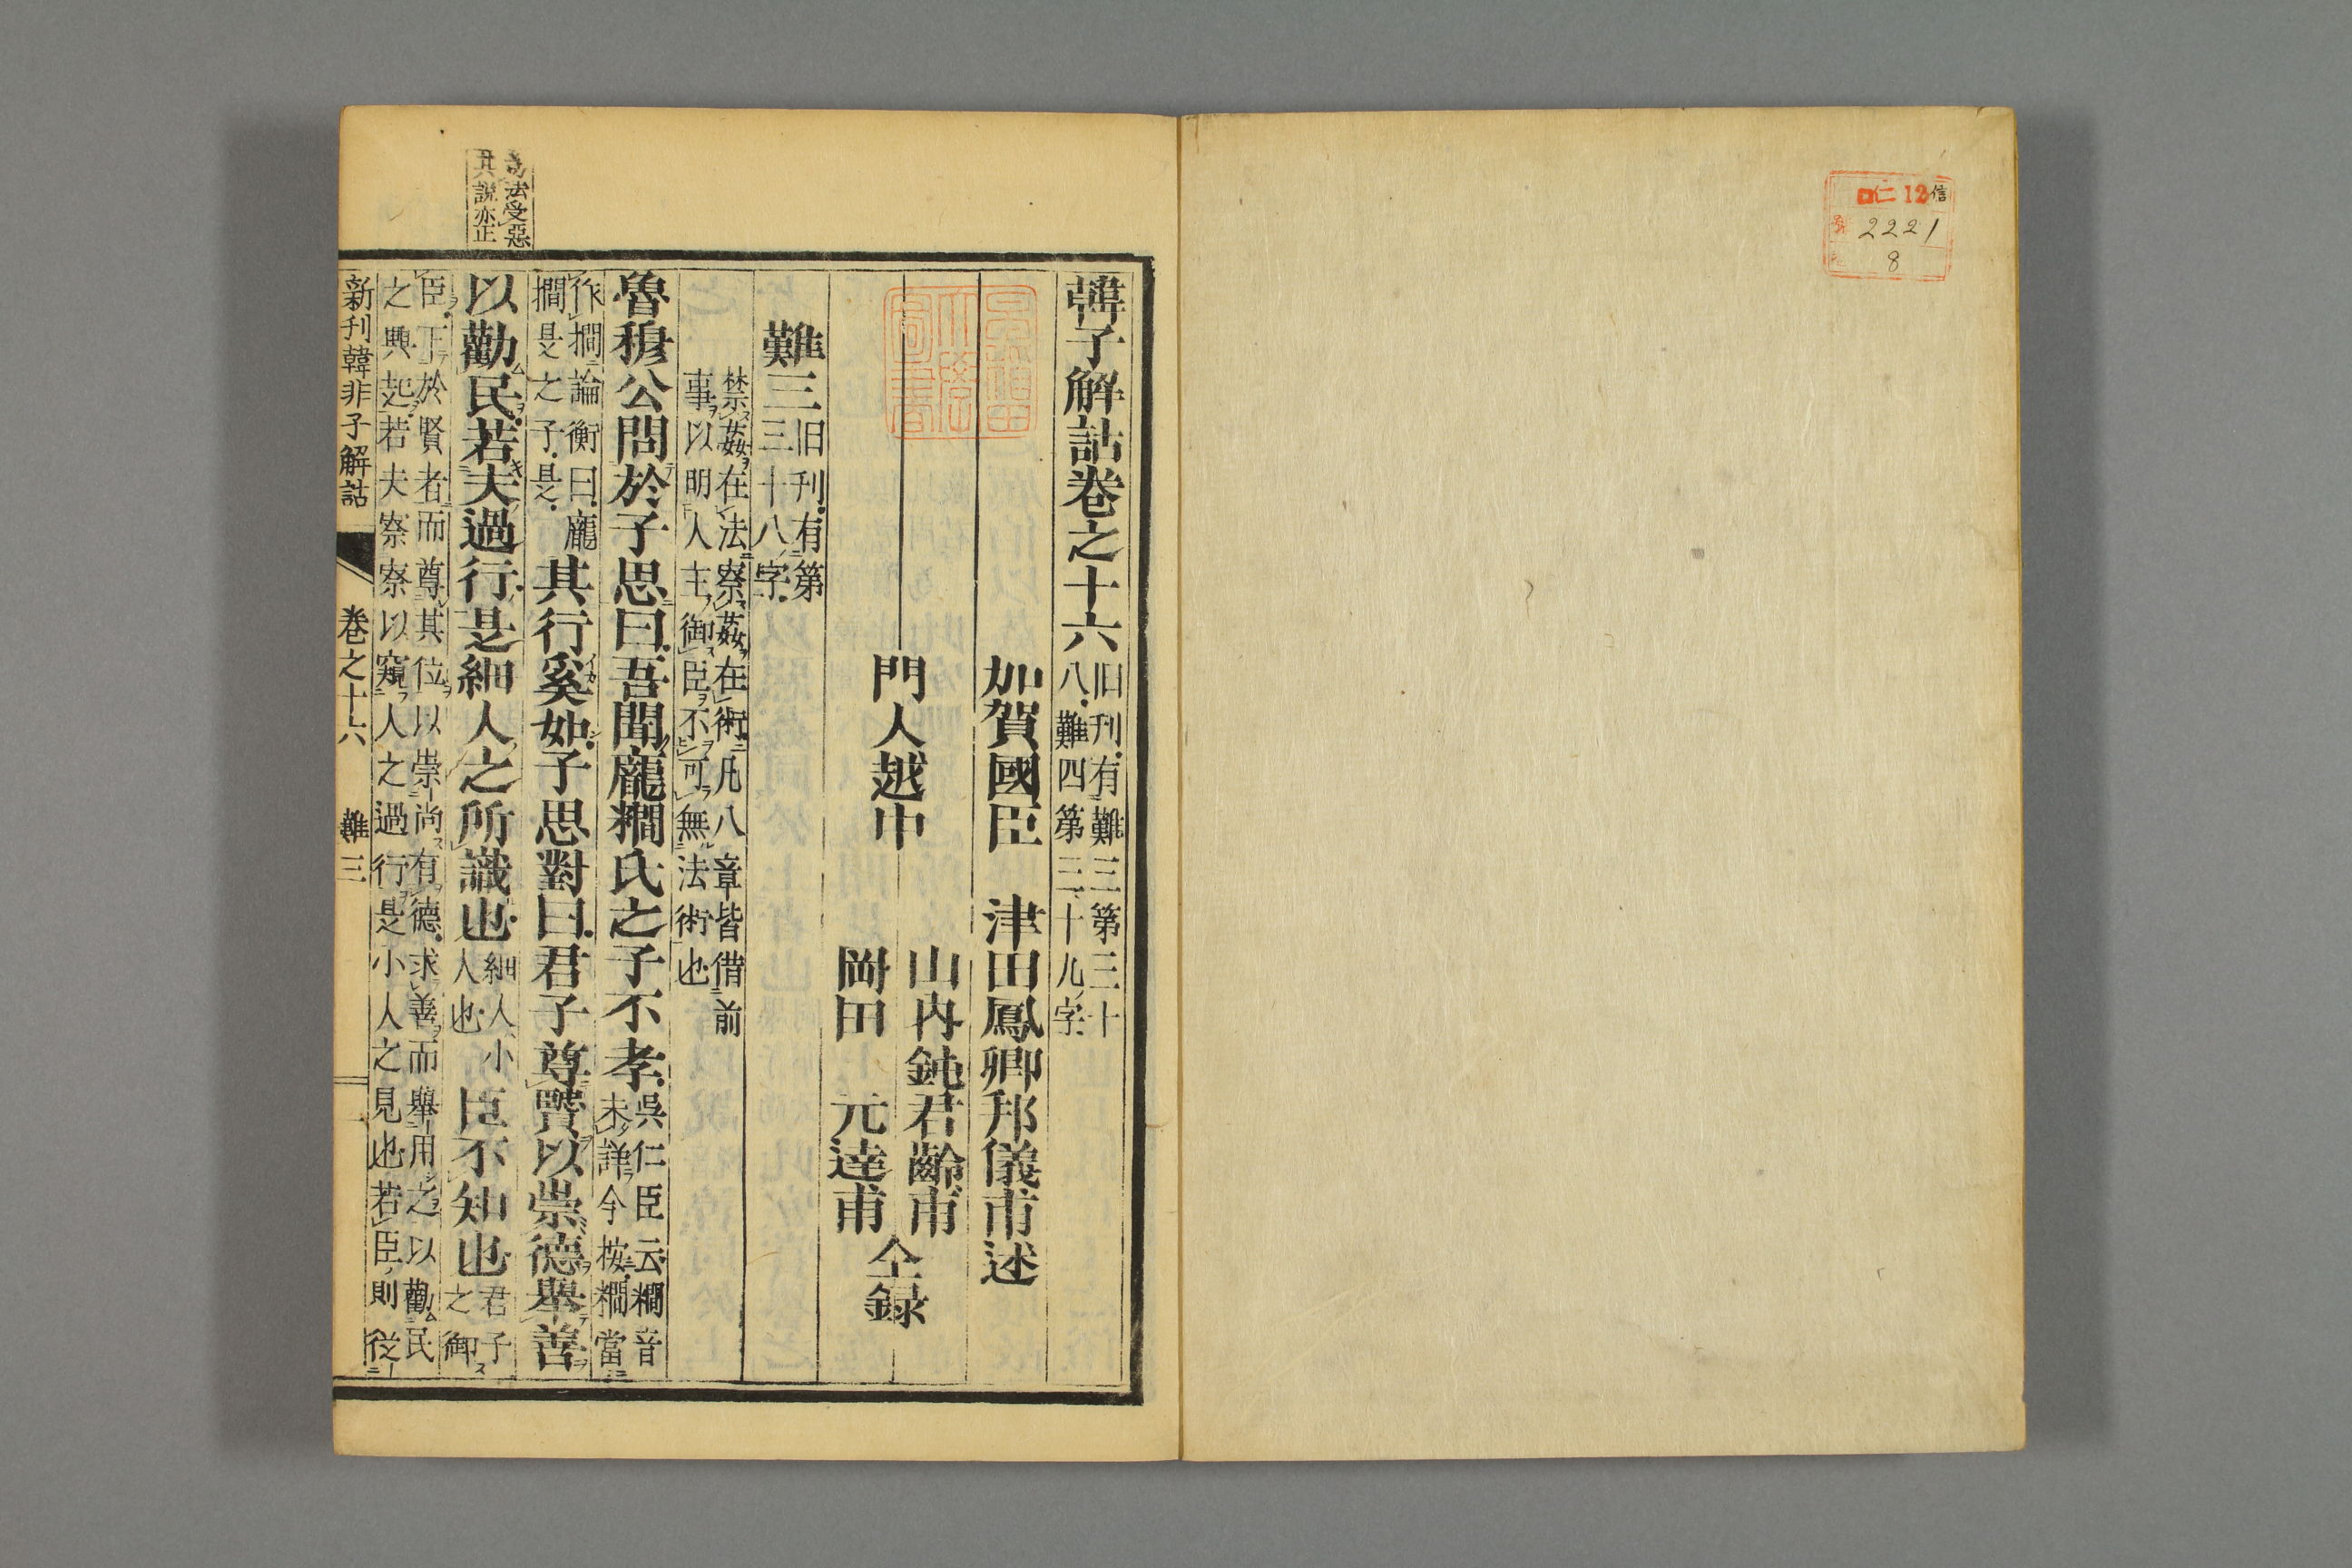 仁 12 信
號 2221
8
韓子解詁卷之十六
旧刋有難三第三十
八難四第三十九字
加賀國臣 津田鳳卿邦儀甫述
門人越中
山內鈍君齡甫
岡田 元達甫
仝録
難三
旧刋有第
三十八字
禁姦在法察姦在術凡八章皆借前
事以明人主御臣不可無法術也
魯穆公問於子思曰吾聞龐𥽸氏之子不孝
吳仁臣云𥽸音
未詳今按𥽸當
作撊論衡曰龐
撊是之子是
其行奚如子思對曰君子尊賢以崇德舉善
以勸民若夫過行是細人之所識也
細人小
人也
臣不知也
君子
之御
臣下於賢者而尊其位以崇尚有德求善而舉用之以勸民
之興起若夫察察以窺人之過行是小人之見也若臣則從
法受惡
其說亦正
新刋韓非子解詁 卷之十六 難三 一